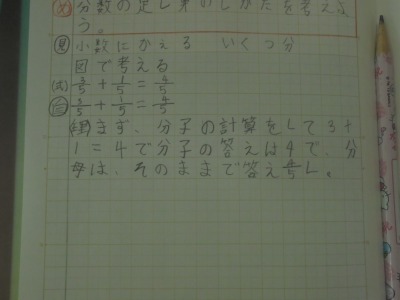 め 分数の足し算のしかたを考えよ
う。
見 小数にかえる いくつ分
図で考える
(式) 3/5 + 1/5 = 4/5
答 3/5 + 1/5 = 4/5
まず、分子の計算をして3+
1=4で分子の答えは4で、分
母は、そのままで答え4/5L。